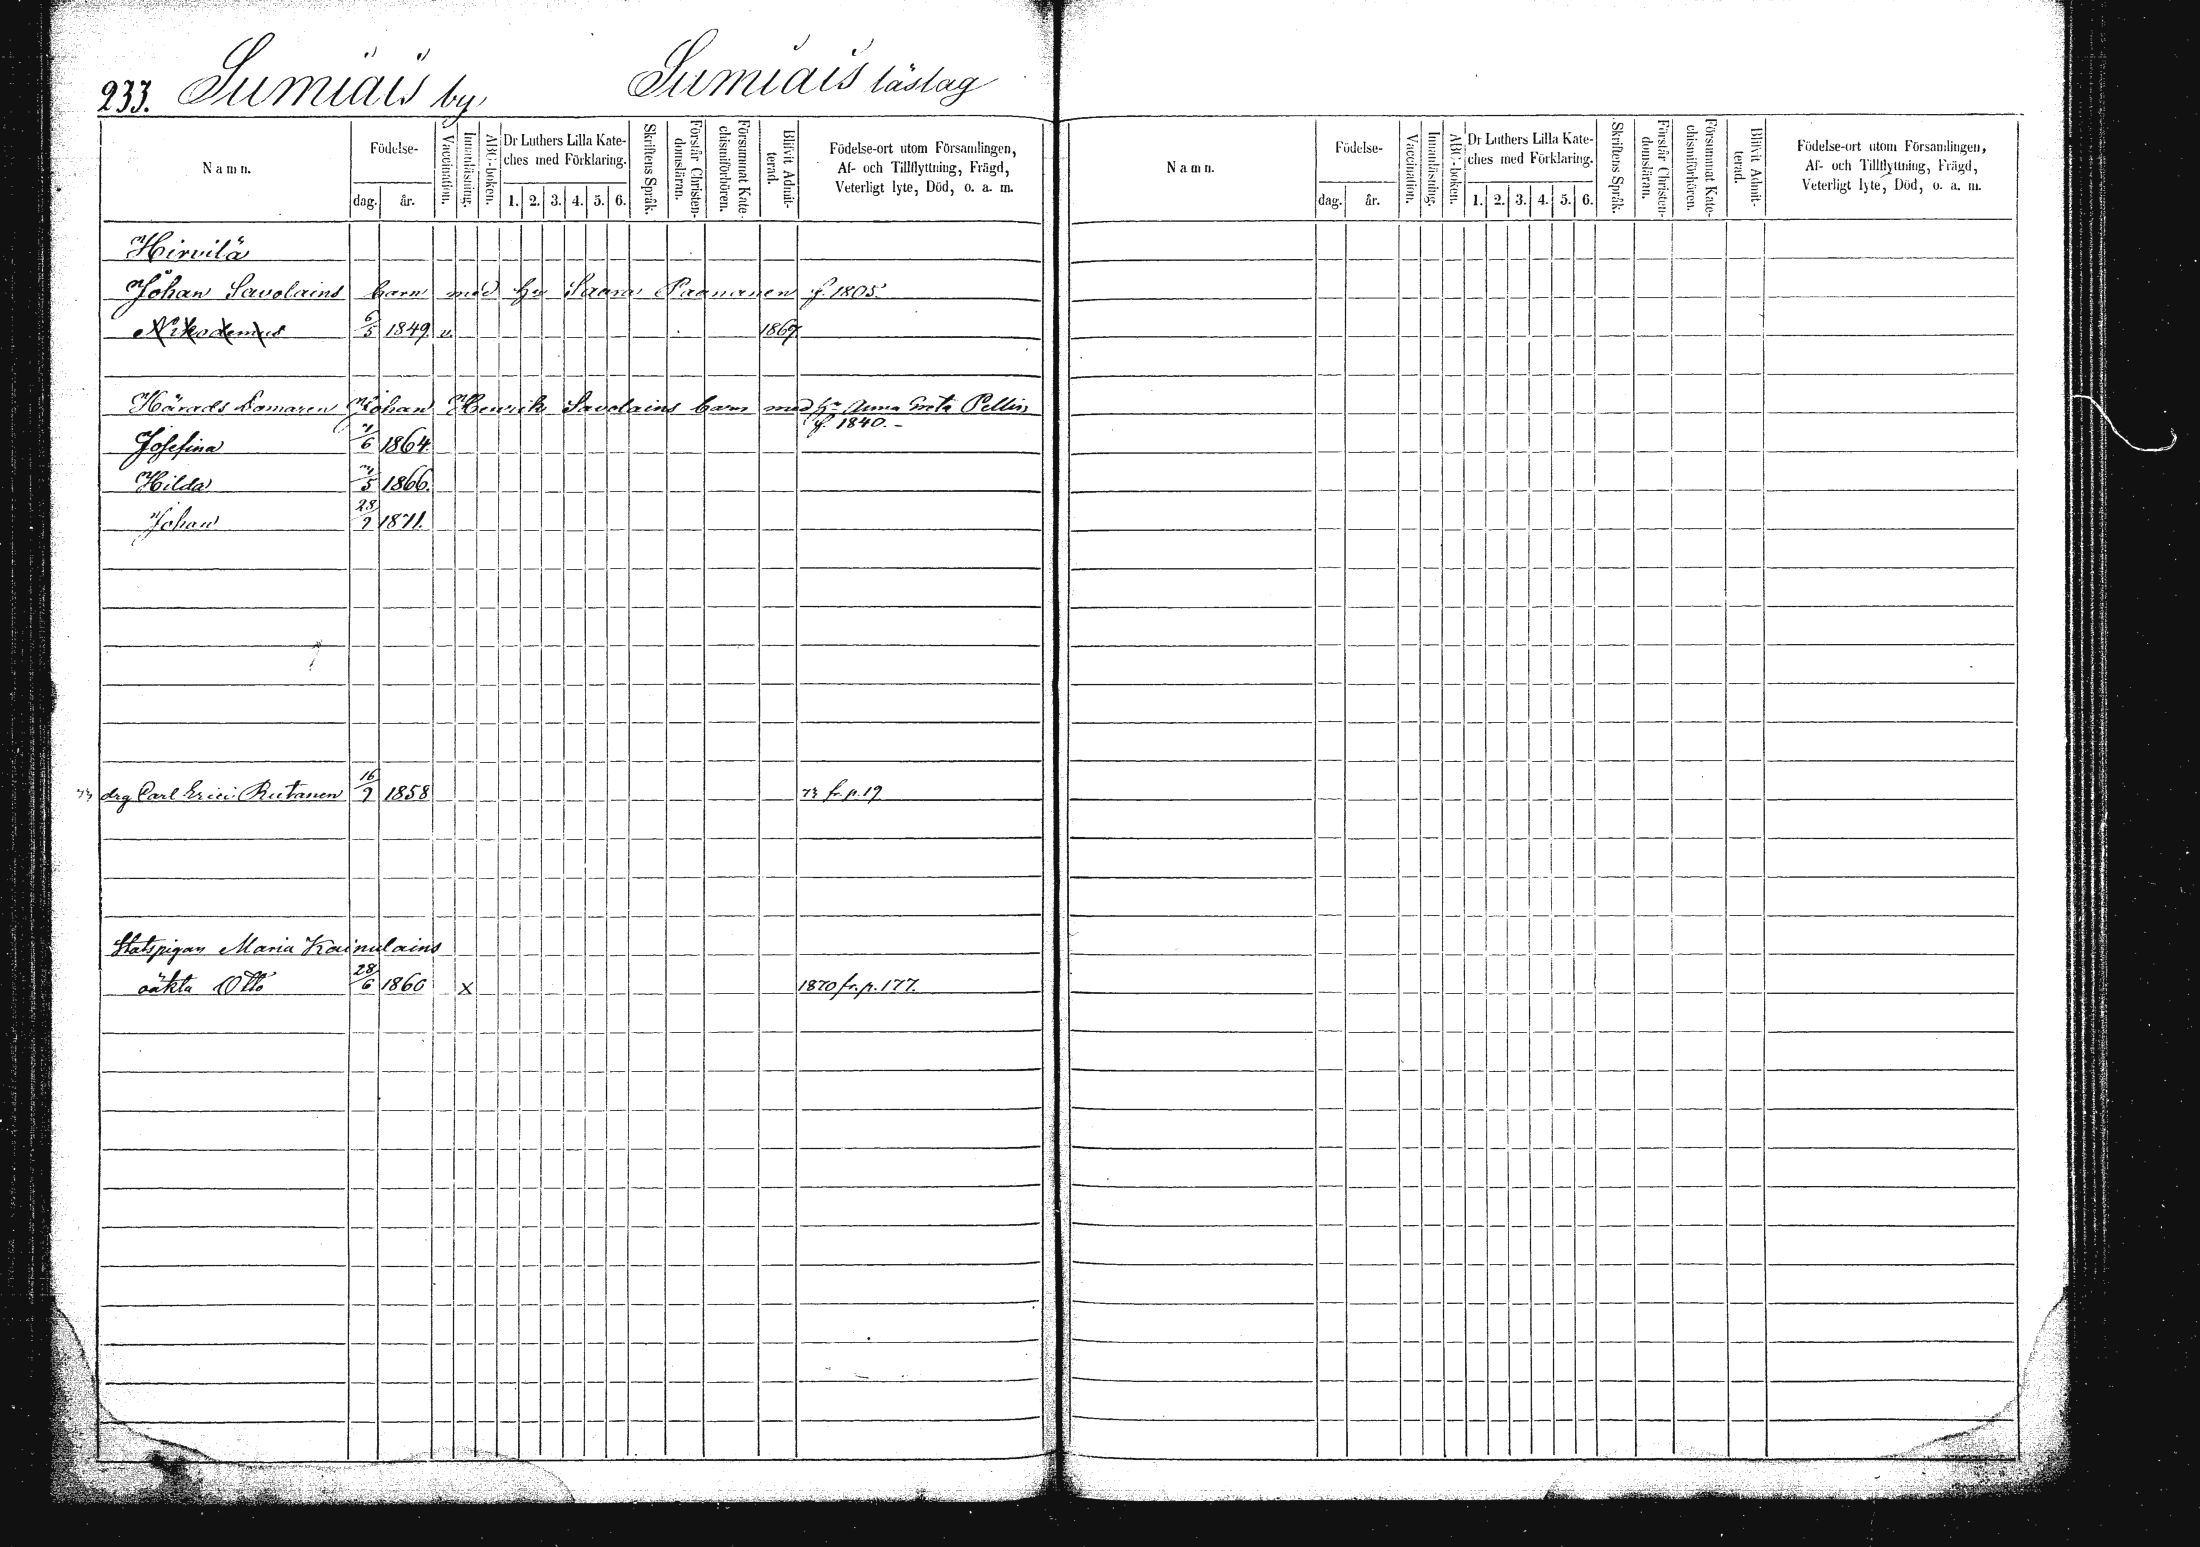 233. Sumiais by Sumiais läslag
Namn. Födelse- dag. år. Vaccination. Innanläsning. ABC-boken. Dr Luthers Lilla Kate-ches med Förklaring. 1. 2. 3. 4. 5. 6. Skriftens Språk. Förstår Christen-domsläran. Försummat Kate-chismiförhören. Blifvit Admit-terad. Födelse-ort utom Församlingen, Af- och Tillflyttning, Frägd, Veterligt lyte, Död, o. a. m.
Hirvilä
Johan Savolains barn med hu Saara Paananen f. 1805.
Nikodemus 6/5 1849. v. 1867
Härads Domaren Johan Henrik Savolains barn med hu Anna Greta Pellin
f. 1840. -
Josefina 7/6 1864.
Hilda 7/5 1866.
Johan 28/9 1871.
73 drg Carl Erici Rutanen 16/9 1858 73 fr. p. 19
Statspigan Maria Kainulains
oäkta Otto 28/6 1860 x 1870 fr. p. 177.
Namn. Födelse- dag. år. Vaccination. Innanläsning. ABC-boken. Dr Luthers Lilla Kate-ches med Förklaring. 1. 2. 3. 4. 5. 6. Skriftens Språk. Förstår Christen-domsläran. Försummat Kate-chismiförhören. Blifvit Admit-terad. Födelse-ort utom Församlingen, Af- och Tillflyttning, Frägd, Veterligt lyte, Död, o. a. m.